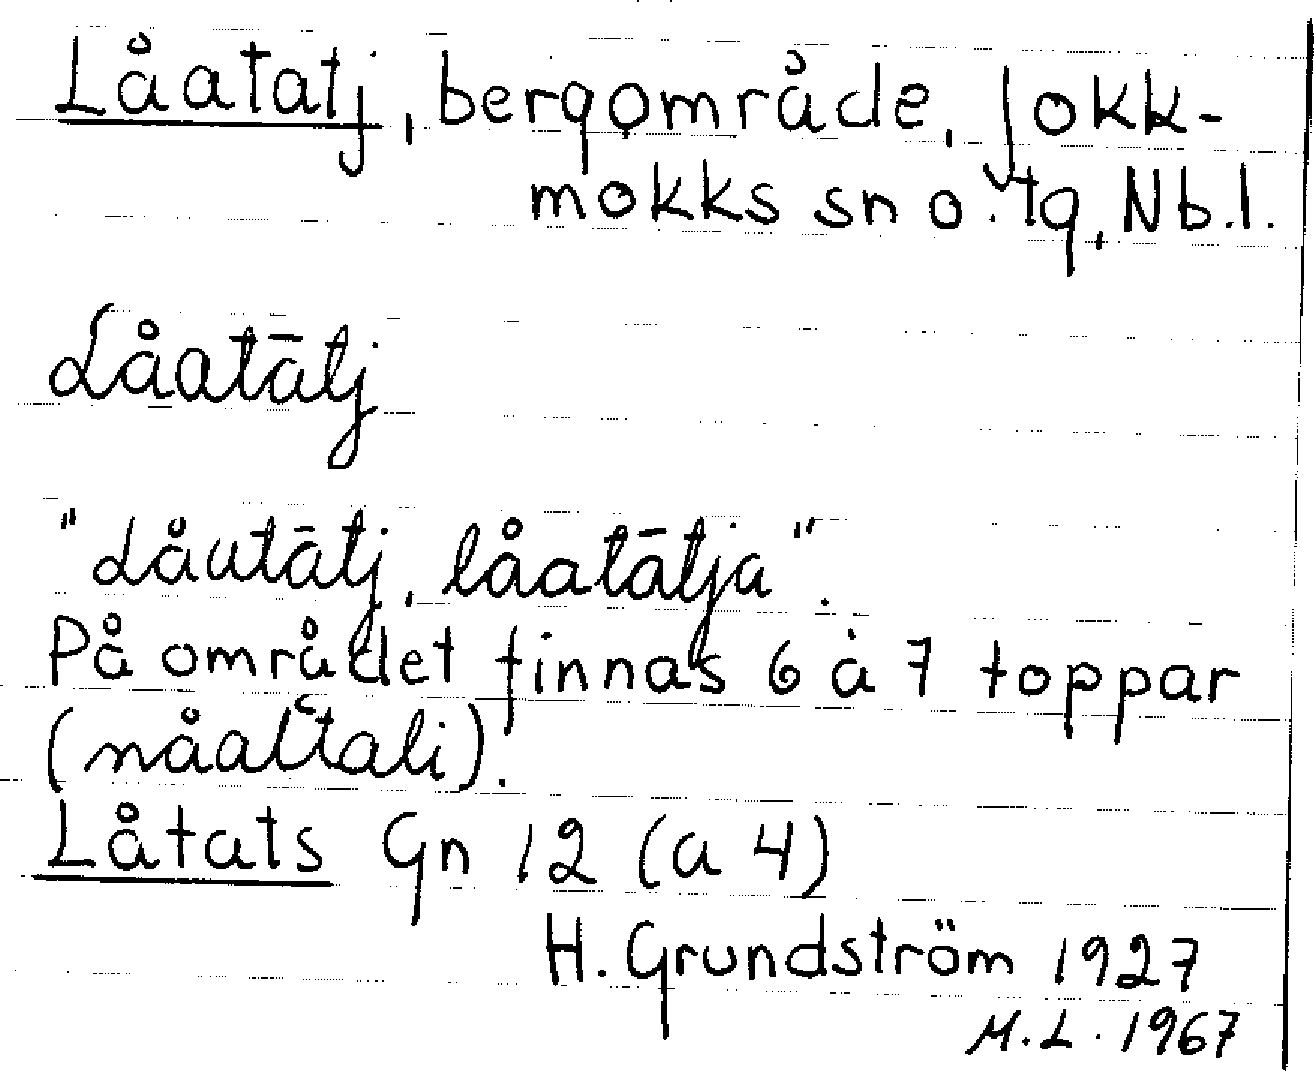 Låatatj, bergområde, Jokk-
mokks sn o. tg, Nb.l.
Låatātj
"Låutātj, låatātja".
På området finnas 6 à 7 toppar
(nåaltali).
Låtats Gn 12 (a 4)
H. Grundström 1927
M.L. 1967